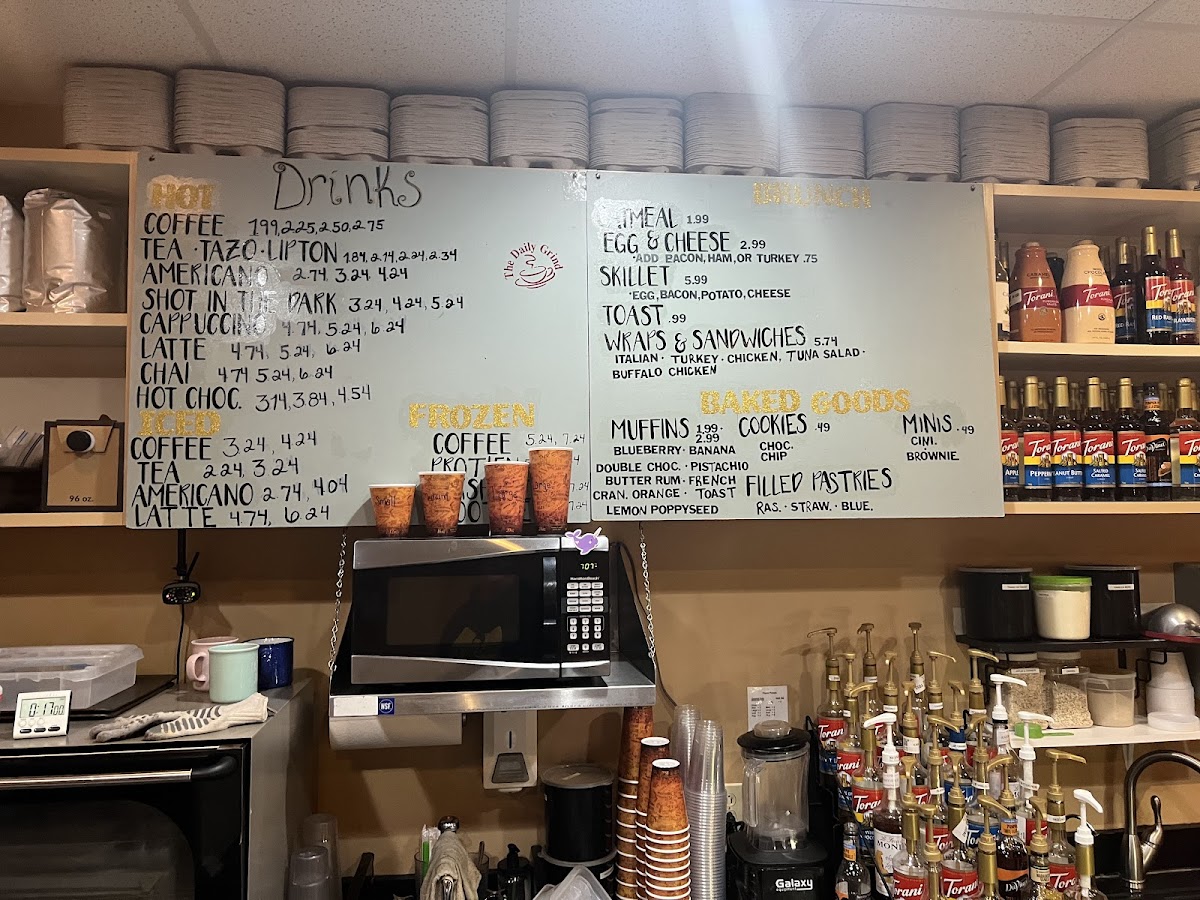 Drinks
HOT
COFFEE 1.99, 2.25, 2.50, 2.75
TEA · TAZO · LIPTON 1.84, 2.14, 2.24, 2.34
AMERICANO 2.74, 3.24, 4.24
SHOT IN THE DARK 3.24, 4.24, 5.24
CAPPUCCINO 4.74, 5.24, 6.24
LATTE 4.74, 5.24, 6.24
CHAI 4.74 5.24, 6.24
HOT CHOC. 3.14, 3.84, 4.54
ICED
COFFEE 3.24, 4.24
TEA 2.24, 3.24
AMERICANO 2.74, 4.04
LATTE 4.74, 6.24
The Daily Grind
FROZEN
COFFEE 5.24, 7.24
BRUNCH
OATMEAL 1.99
EGG & CHEESE 2.99
*ADD BACON, HAM, OR TURKEY .75
SKILLET 5.99
*EGG, BACON, POTATO, CHEESE
TOAST .99
WRAPS & SANDWICHES 5.74
ITALIAN · TURKEY · CHICKEN, TUNA SALAD ·
BUFFALO CHICKEN
BAKED GOODS
MUFFINS 1.99 · 2.99
BLUEBERRY · BANANA
DOUBLE CHOC. · PISTACHIO
BUTTER RUM · FRENCH
CRAN. ORANGE · TOAST
LEMON POPPYSEED
COOKIES .49
CHOC.
CHIP
MINIS .49
CINI.
BROWNIE
FILLED PASTRIES
RAS. · STRAW. · BLUE.
Small
Large
96 oz.
7:07
NSF
0:17 00
Galaxy
Torani
Torani
Torani
Torani
Torani
PEANUT BUTTER
SALTED CARAMEL